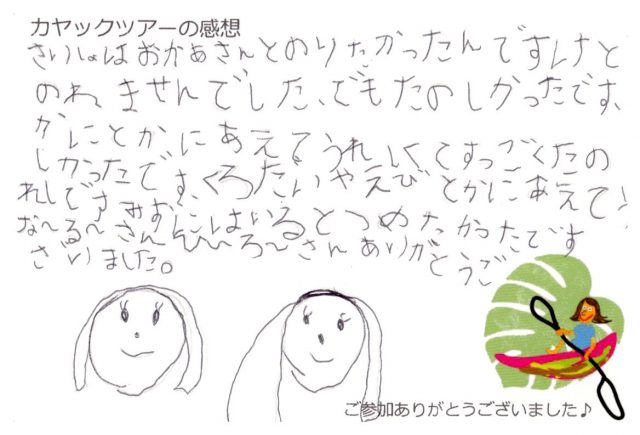 カヤックツアーの感想
さいしょはおかあさんとのりたかったんですけど
のれませんでした、でもたのしかったです、
かにとかにあえてうれしくてすっごくたの
しかったです、くろだいやえびとかにあえて
れしです
みずにはいるとつめたかったです
な〜る〜さん
ろ〜さんありがとうご
ざいました。
ご参加ありがとうございました♪